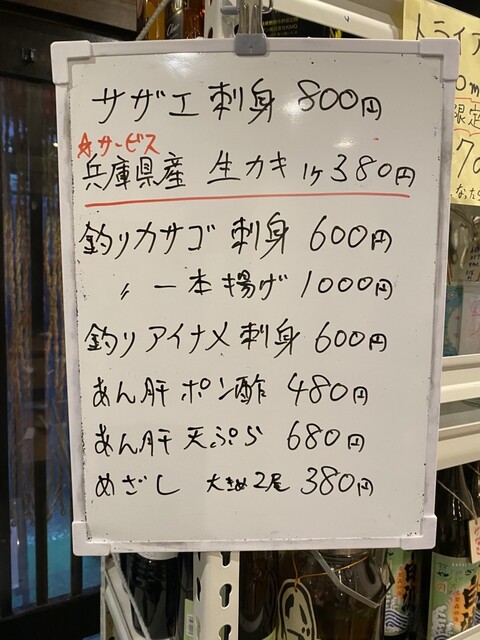 サザエ刺身 800円
☆サービス
兵庫県産 生カキ 1ケ380円
釣りカサゴ 刺身 600円
〃 一本揚げ 1000円
釣りアイナメ刺身 600円
あん肝 ポン酢 480円
あん肝 天ぷら 680円
めざし 大きめ2尾 380円
トライア
限定